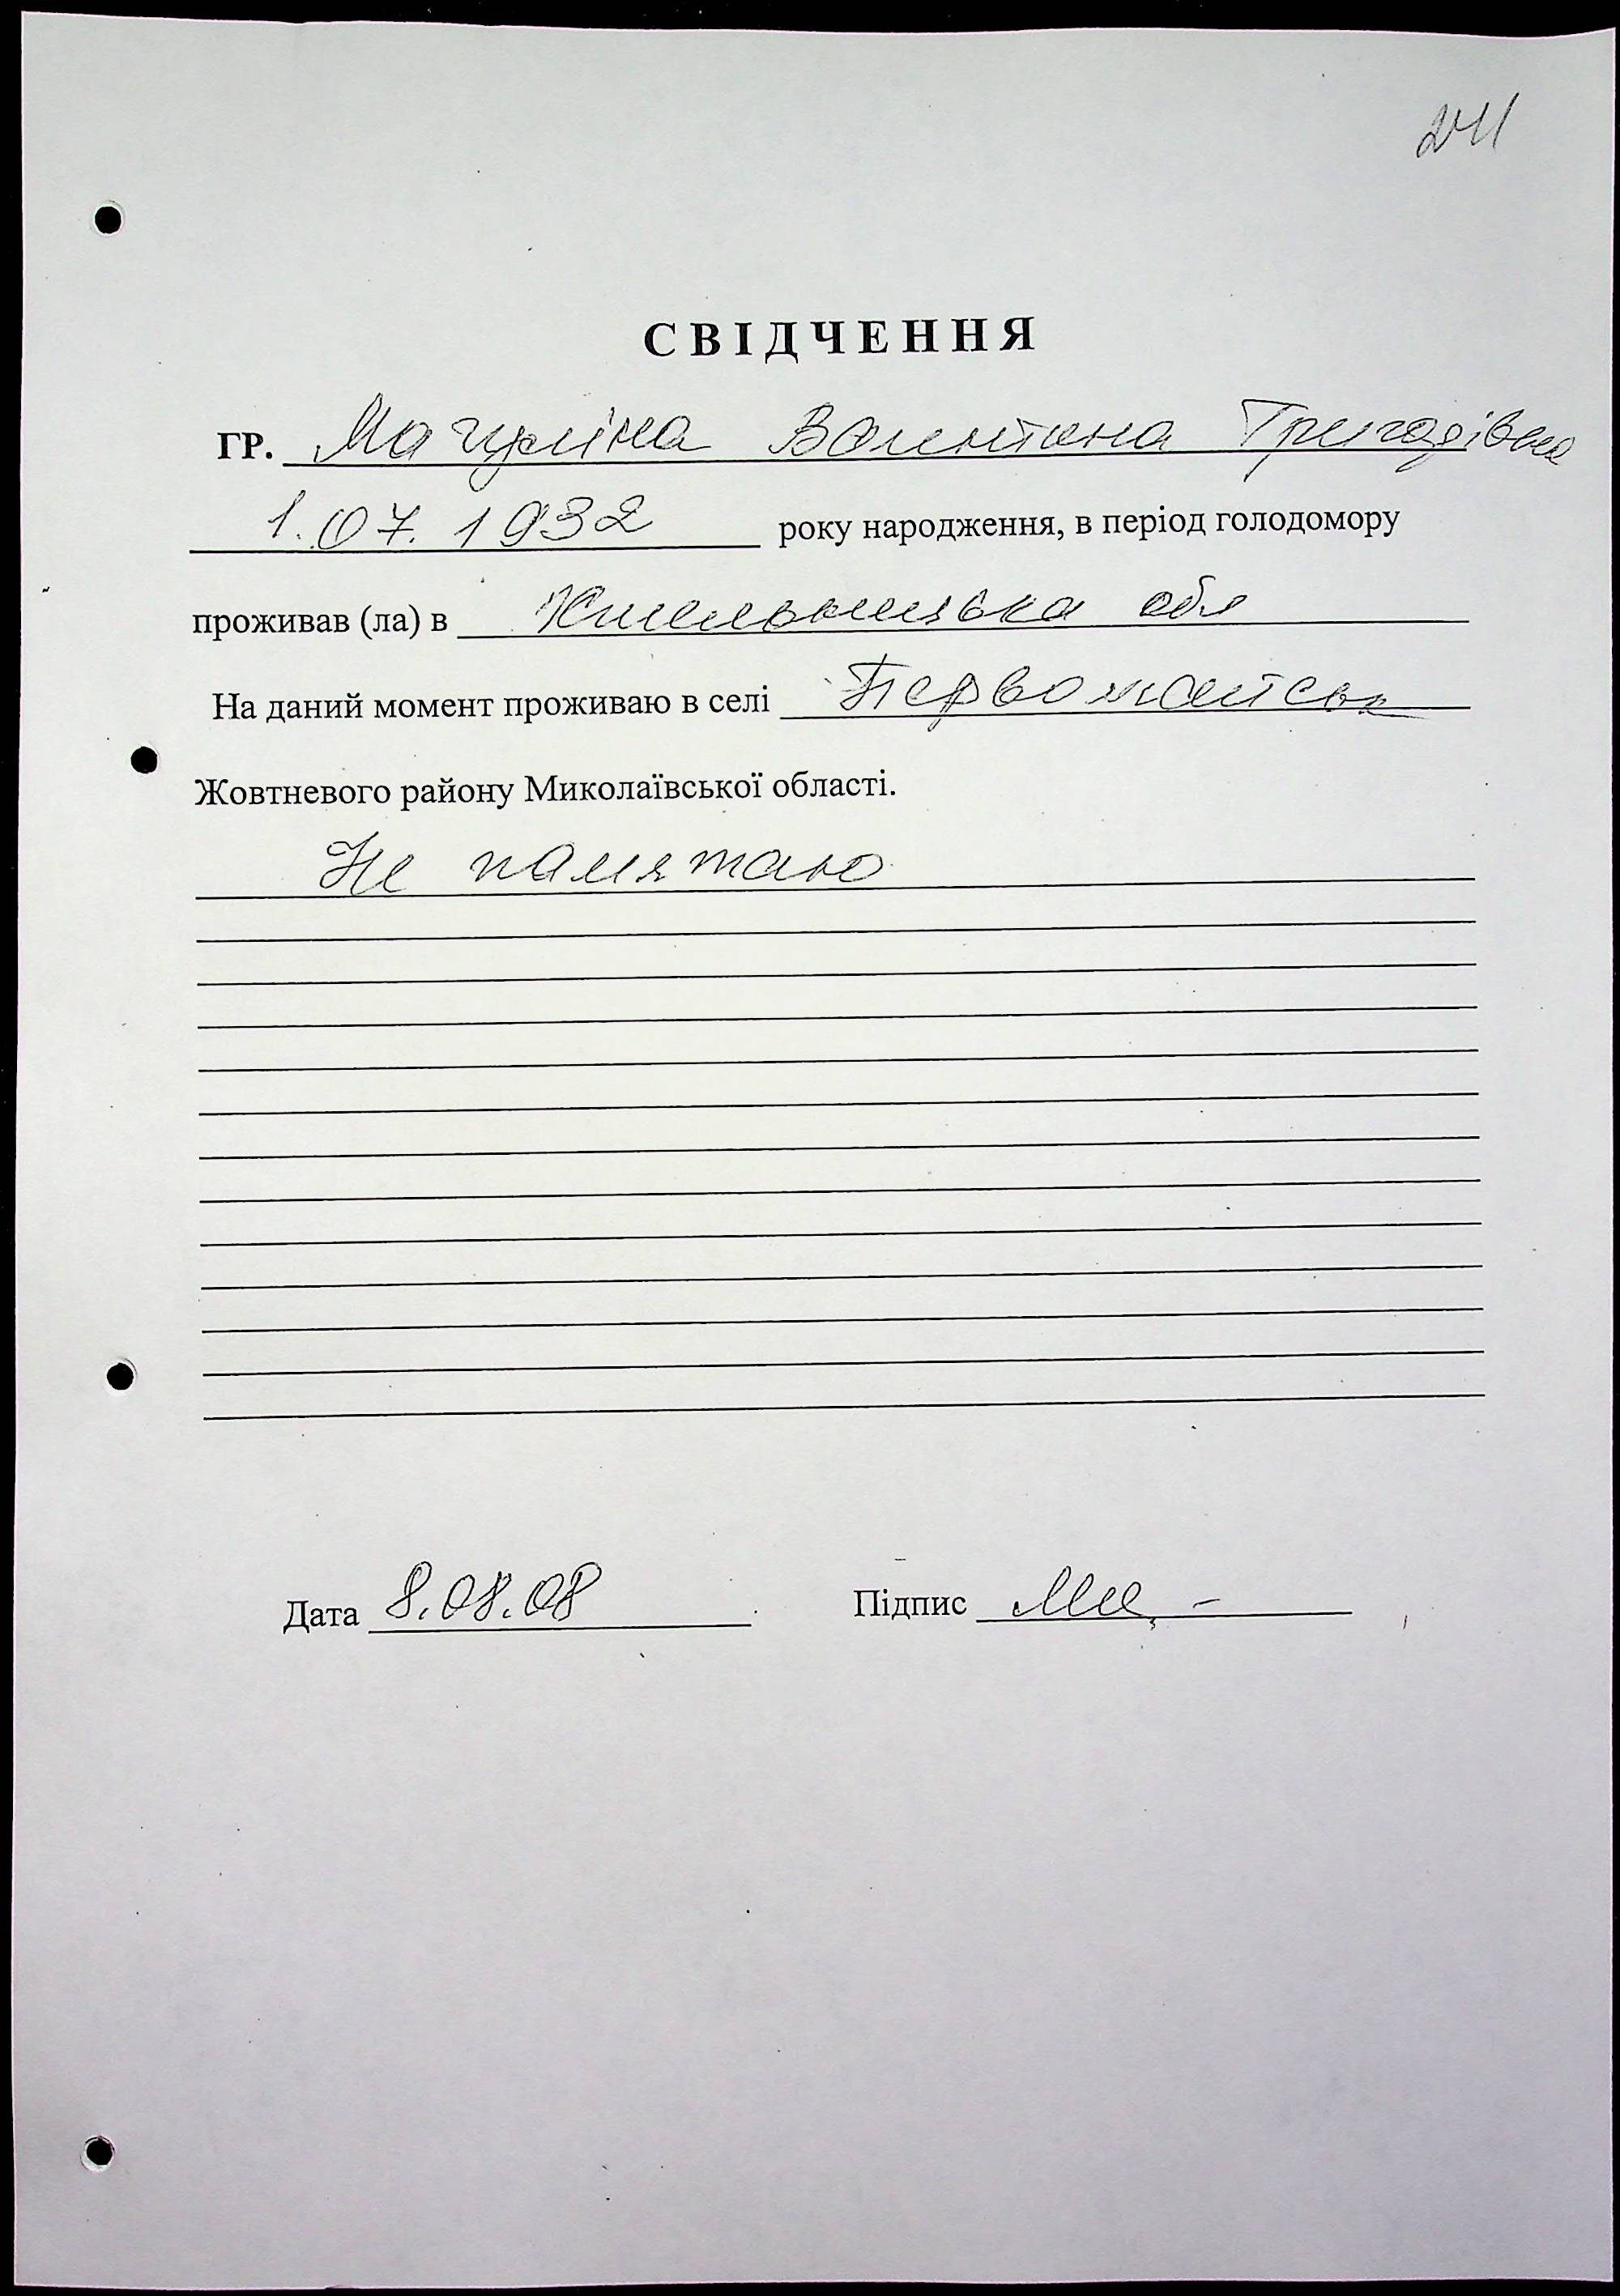 241
СВІДЧЕННЯ
ГР. Валентина Григорівна
1.07.1932 року народження, в період голодомору
проживав (ла) в Хмельницька обл
На даний момент проживаю в селі Первомайськ
Жовтневого району Миколаївської області.
Не памятаю
Дата 8.08.08 Підпис